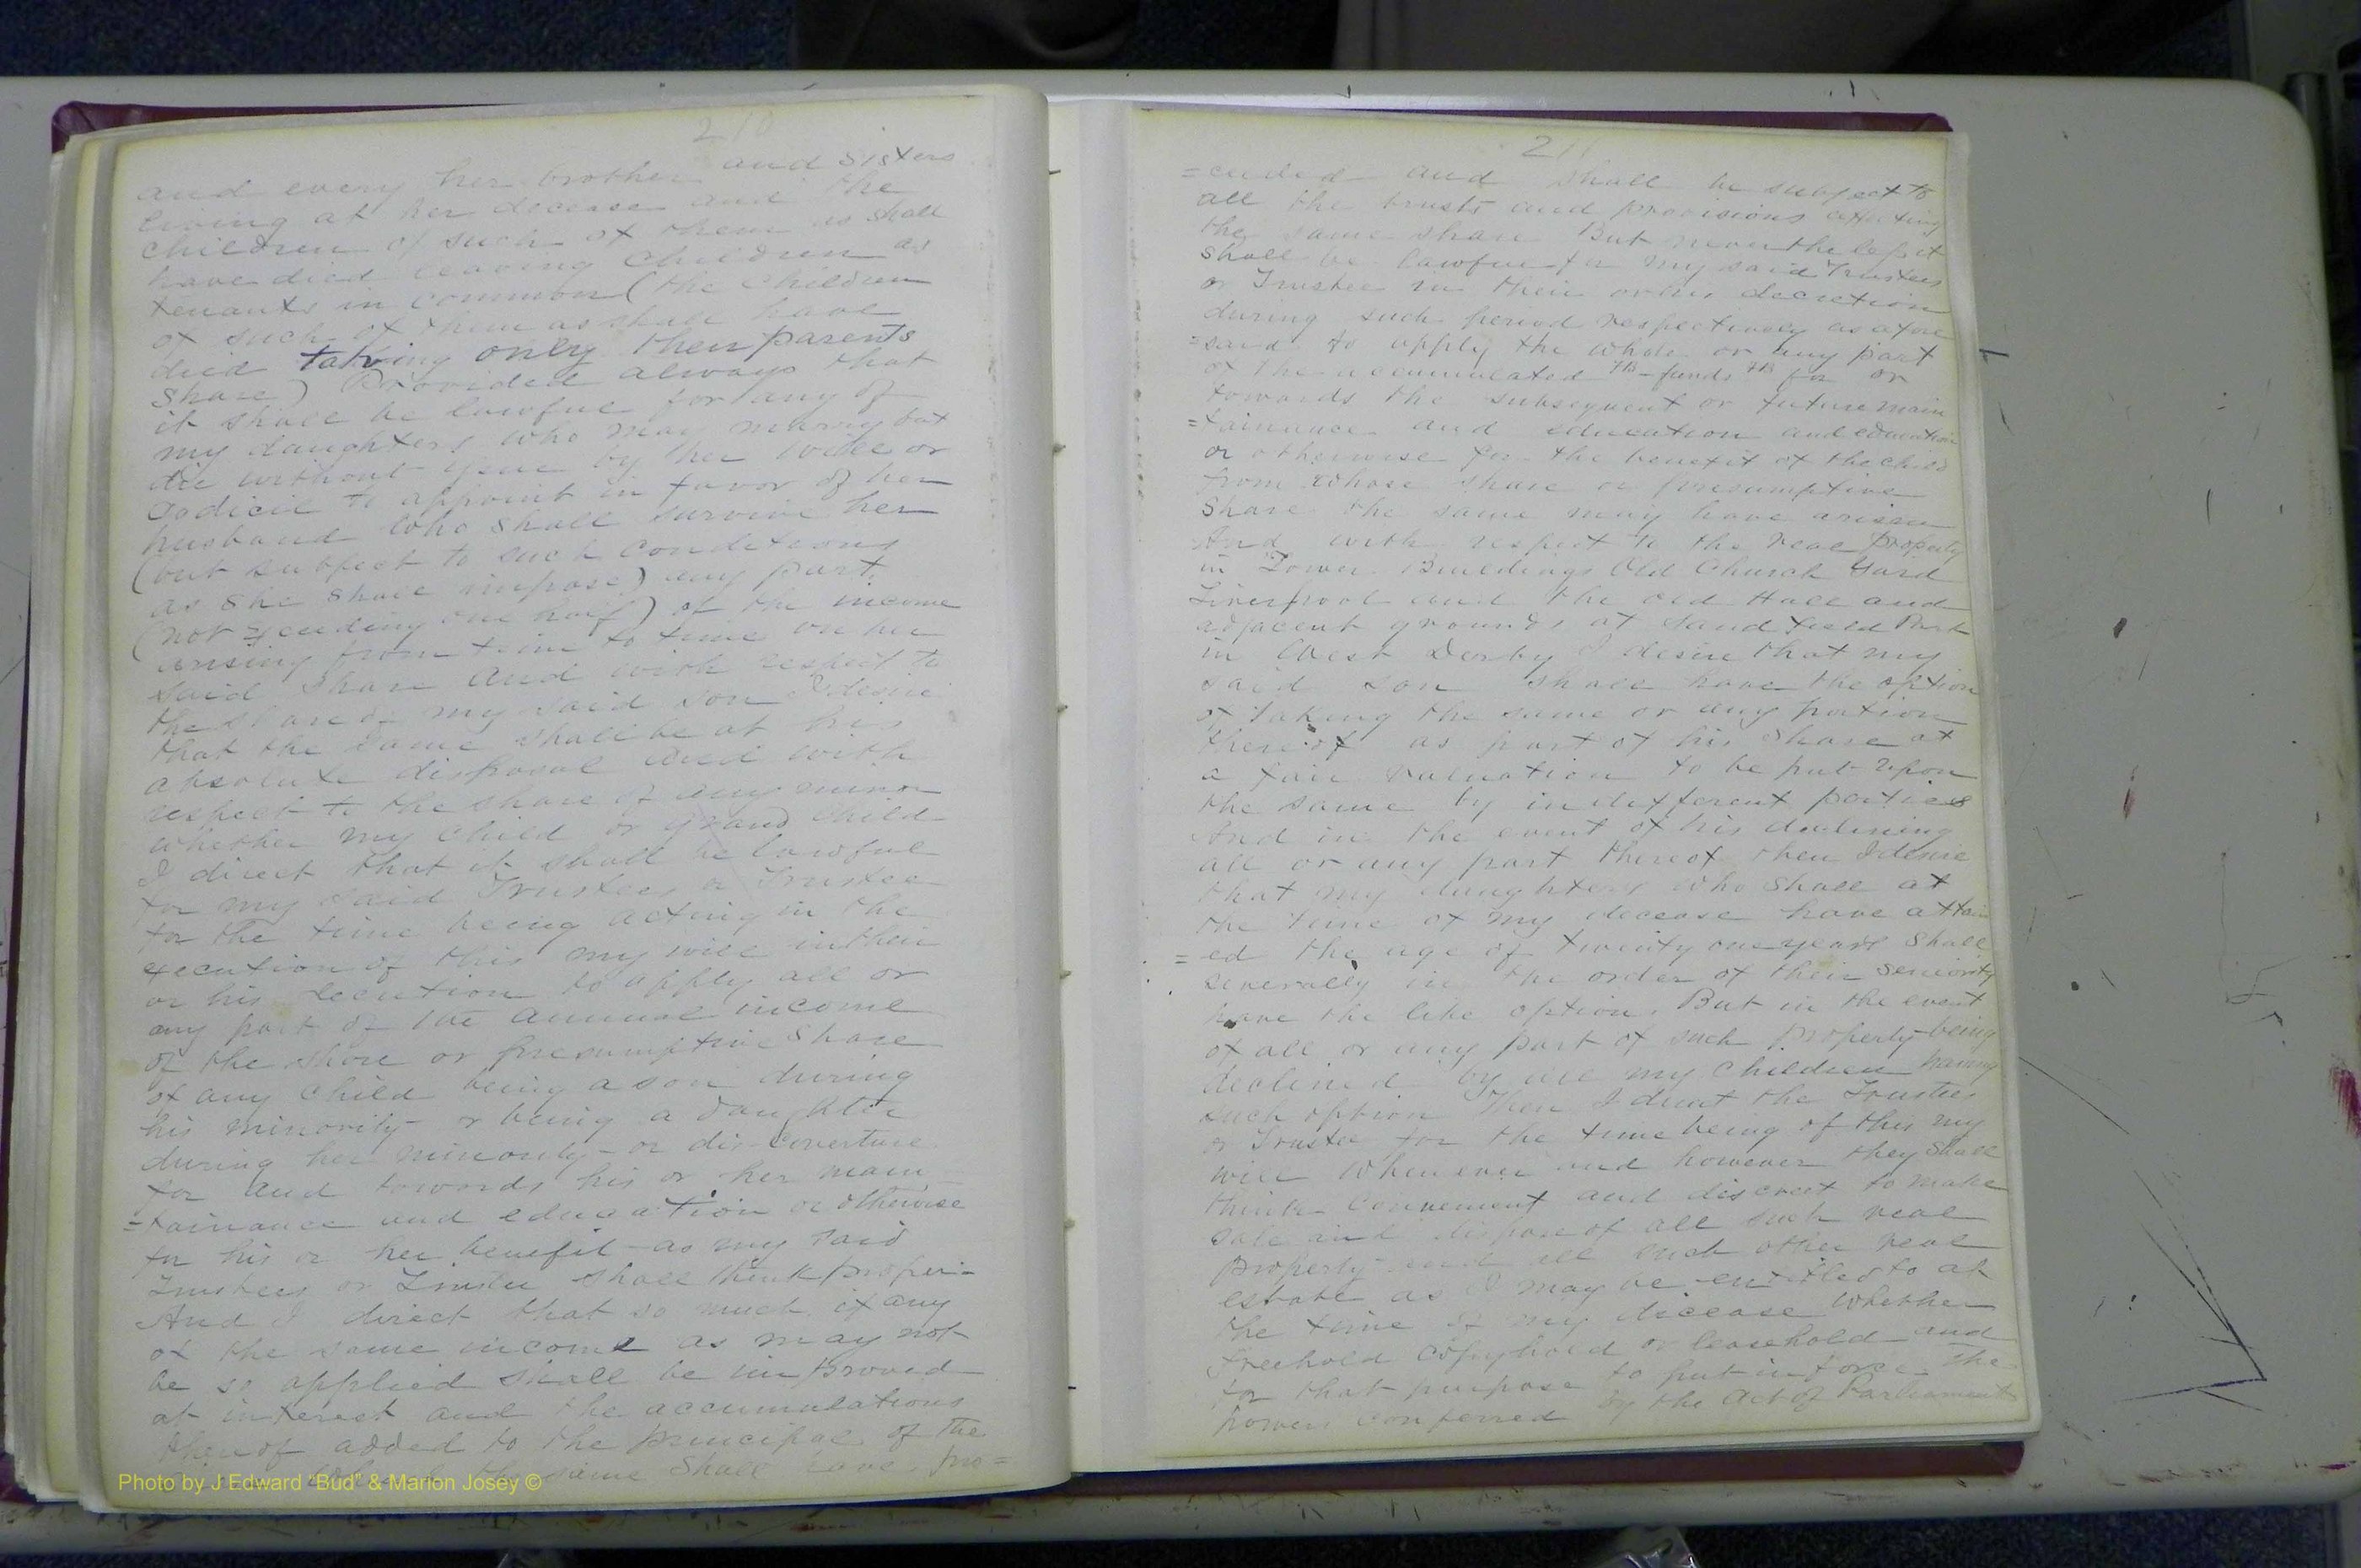 210
and every her brother and sisters
living at her decease and the
children of such of them as shall
have died leaving children as
tenants in common (the children
of such of them as shall have
died taking only their parents
share) Provided always that
it shall be lawful for any of
my daughters who may marry but
die without issue by her will or
Codicil to appoint in favor of her
husband who shall survive her
(but subject to such conditions
as she shall impose) any part
(not exceeding one half) of the income
arising from time to time on her
said share And with respect to
the share of my said son I desire
that the same shall be at his
absolute disposal And with
respect to the share of any minor
whether my child or grand child
I direct that it shall be lawful
for my said Trustees or Trustee
for the time being acting in the
execution of this my will in their
or his decretion to apply all or
any part of the annual income
of the share or presumptive share
of any child being a son during
his minority or being a daughter
during her minority or discoverture
for and towards his or her main
=tainance and education or otherwise
for his or her benefit as my said
Trustees or Trustee shall think proper
And I direct that so much if any
of the same income as may not
be so applied shall be improved
at interest and the accumulations
thereof added to the principal of the
same shall have pro=
Photo by J Edward "Bud" & Marion Josey ©
211
=ceeded and shall be subject to
all the trusts and provisions affecting
the same share But nevertheless it
shall be lawful for my said Trustees
or Trustee in their or his decretion
during such period respectively as afore
=said to apply the whole or any part
of the accumulated funds for or
towards the subsequent or future main
=tainance and education and education
or otherwise for the benefit of the child
from whose share or presumptive
share the same may have arisen
And with respect to the real property
in Tower Buildings Old Church Yard
Liverpool and the old Hall and
adjacent grounds at Sandfield Park
in West Derby I desire that my
said son shall have the option
of taking the same or any portion
thereof as part of his share at
a fair valuation to be put upon
the same by indifferent parties
And in the event of his declining
all or any part thereof then I desire
that my daughters who shall at
the time of my decease have attain
=ed the age of twenty one years shall
severally in the order of their seniority
have the like option. But in the event
of all or any part of such property being
declined by all my children having
such option Then I direct the Trustees
or Trustee for the time being of this my
will whenever and however they shall
think convenient and discreet to make
sale and dispose of all such real
property and all such other real
estate as I may be entitled to at
the time of my decease whether
freehold copyhold or leasehold and
for that purpose to put in force the
powers conferred by the Act of Parliament